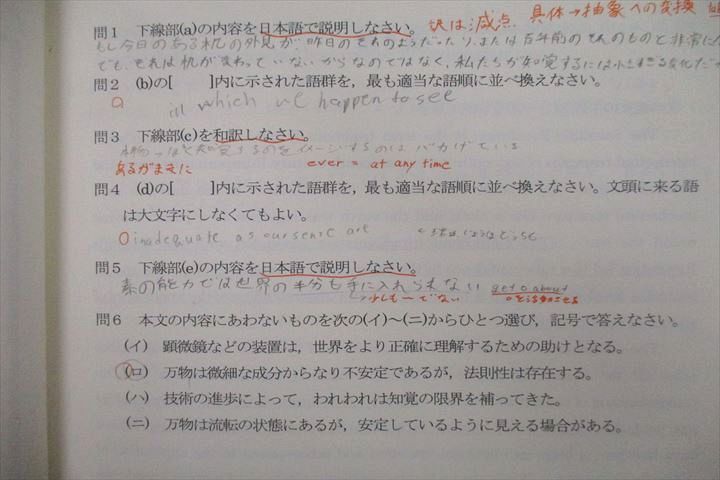 問1 下線部(a)の内容を日本語で説明しなさい。 訳は減点 具体→抽象への変換
もし今日のある机の外見が昨日のそれのようだったり、または百年前のそれのものと非常に
でも、それは机が変わっていないからなのではなく、私たちが知覚するには小さすぎる変化だ
問2 (b)の[ ]内に示された語群を，最も適当な語順に並べ換えなさい。
in which we happen to see
問3 下線部(c)を和訳しなさい。
のはバカげている
あるがままに ever = at any time
問4 (d)の[ ]内に示された語群を，最も適当な語順に並べ換えなさい。文頭に来る語
は大文字にしなくてもよい。
inadequate as our sense are
問5 下線部(e)の内容を日本語で説明しなさい。
素の能力では世界の半分も手に入れられない get o about
少しも〜でない
問6 本文の内容にあわないものを次の(イ)～(ニ)からひとつ選び，記号で答えなさい。
(イ) 顕微鏡などの装置は，世界をより正確に理解するための助けとなる。
(ロ) 万物は微細な成分からなり不安定であるが，法則性は存在する。
(ハ) 技術の進歩によって，われわれは知覚の限界を補ってきた。
(ニ) 万物は流転の状態にあるが，安定しているように見える場合がある。